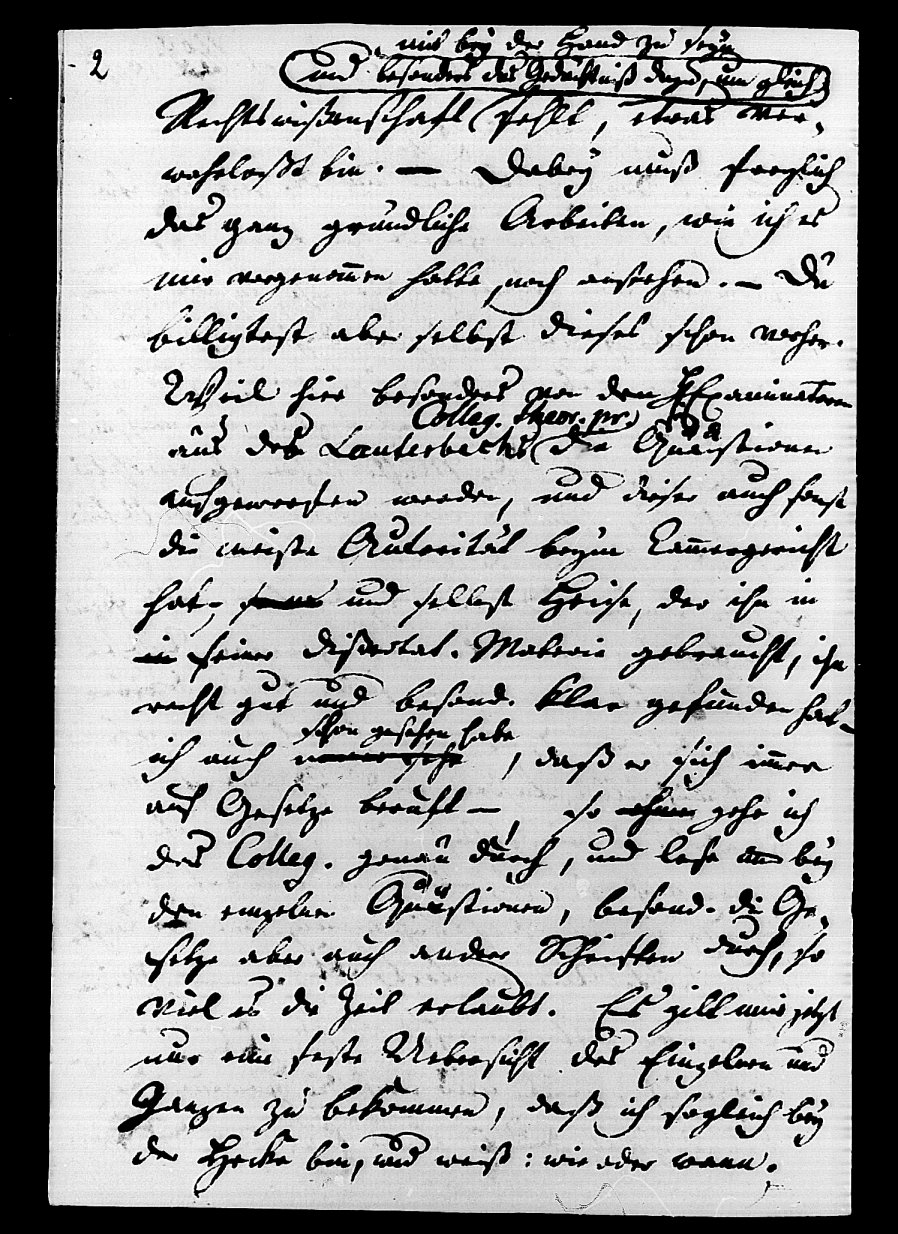 2
mir bey der Hand zu seyn
und besonders das Gedächtniß dazu, um gleich
Rechtswißenschaft fehlt, etwas ver-
wahrloßt bin. — Dabey muß freylich
das ganz gründliche Arbeiten, wie ich es
mir vorgenommen hatte, noch anstehen. — Du
billigtest aber selbst dieses schon vorher.
Weil hier besonders von den Examinatoren
Colleg. theor. pr.
aus des Lauterbachs die Quästionen
aufgeworfen werden, und dieser auch sonst
die meiste Autorität beym Kammergericht
hat, und selbst Heise, der ihn in
in seiner Dißertat. Materie gebraucht, ihn
recht gut und besond. klar gefunden hat
schon gesehen habe
ich auch , daß er sich immer
auf Gesetze beruft — , so gehe ich
das Colleg. genau durch, und lese bey
den einzelnen Quästionen, besond. die Ge-
setze aber auch andere Schriften durch, so
viel es die Zeit erlaubt. Es gilt mir jetzt
nur eine feste Uebersicht des Einzelnen und
Ganzen zu bekommen, daß ich sogleich bey
der Hecke bin, und weiß: wie oder wann.